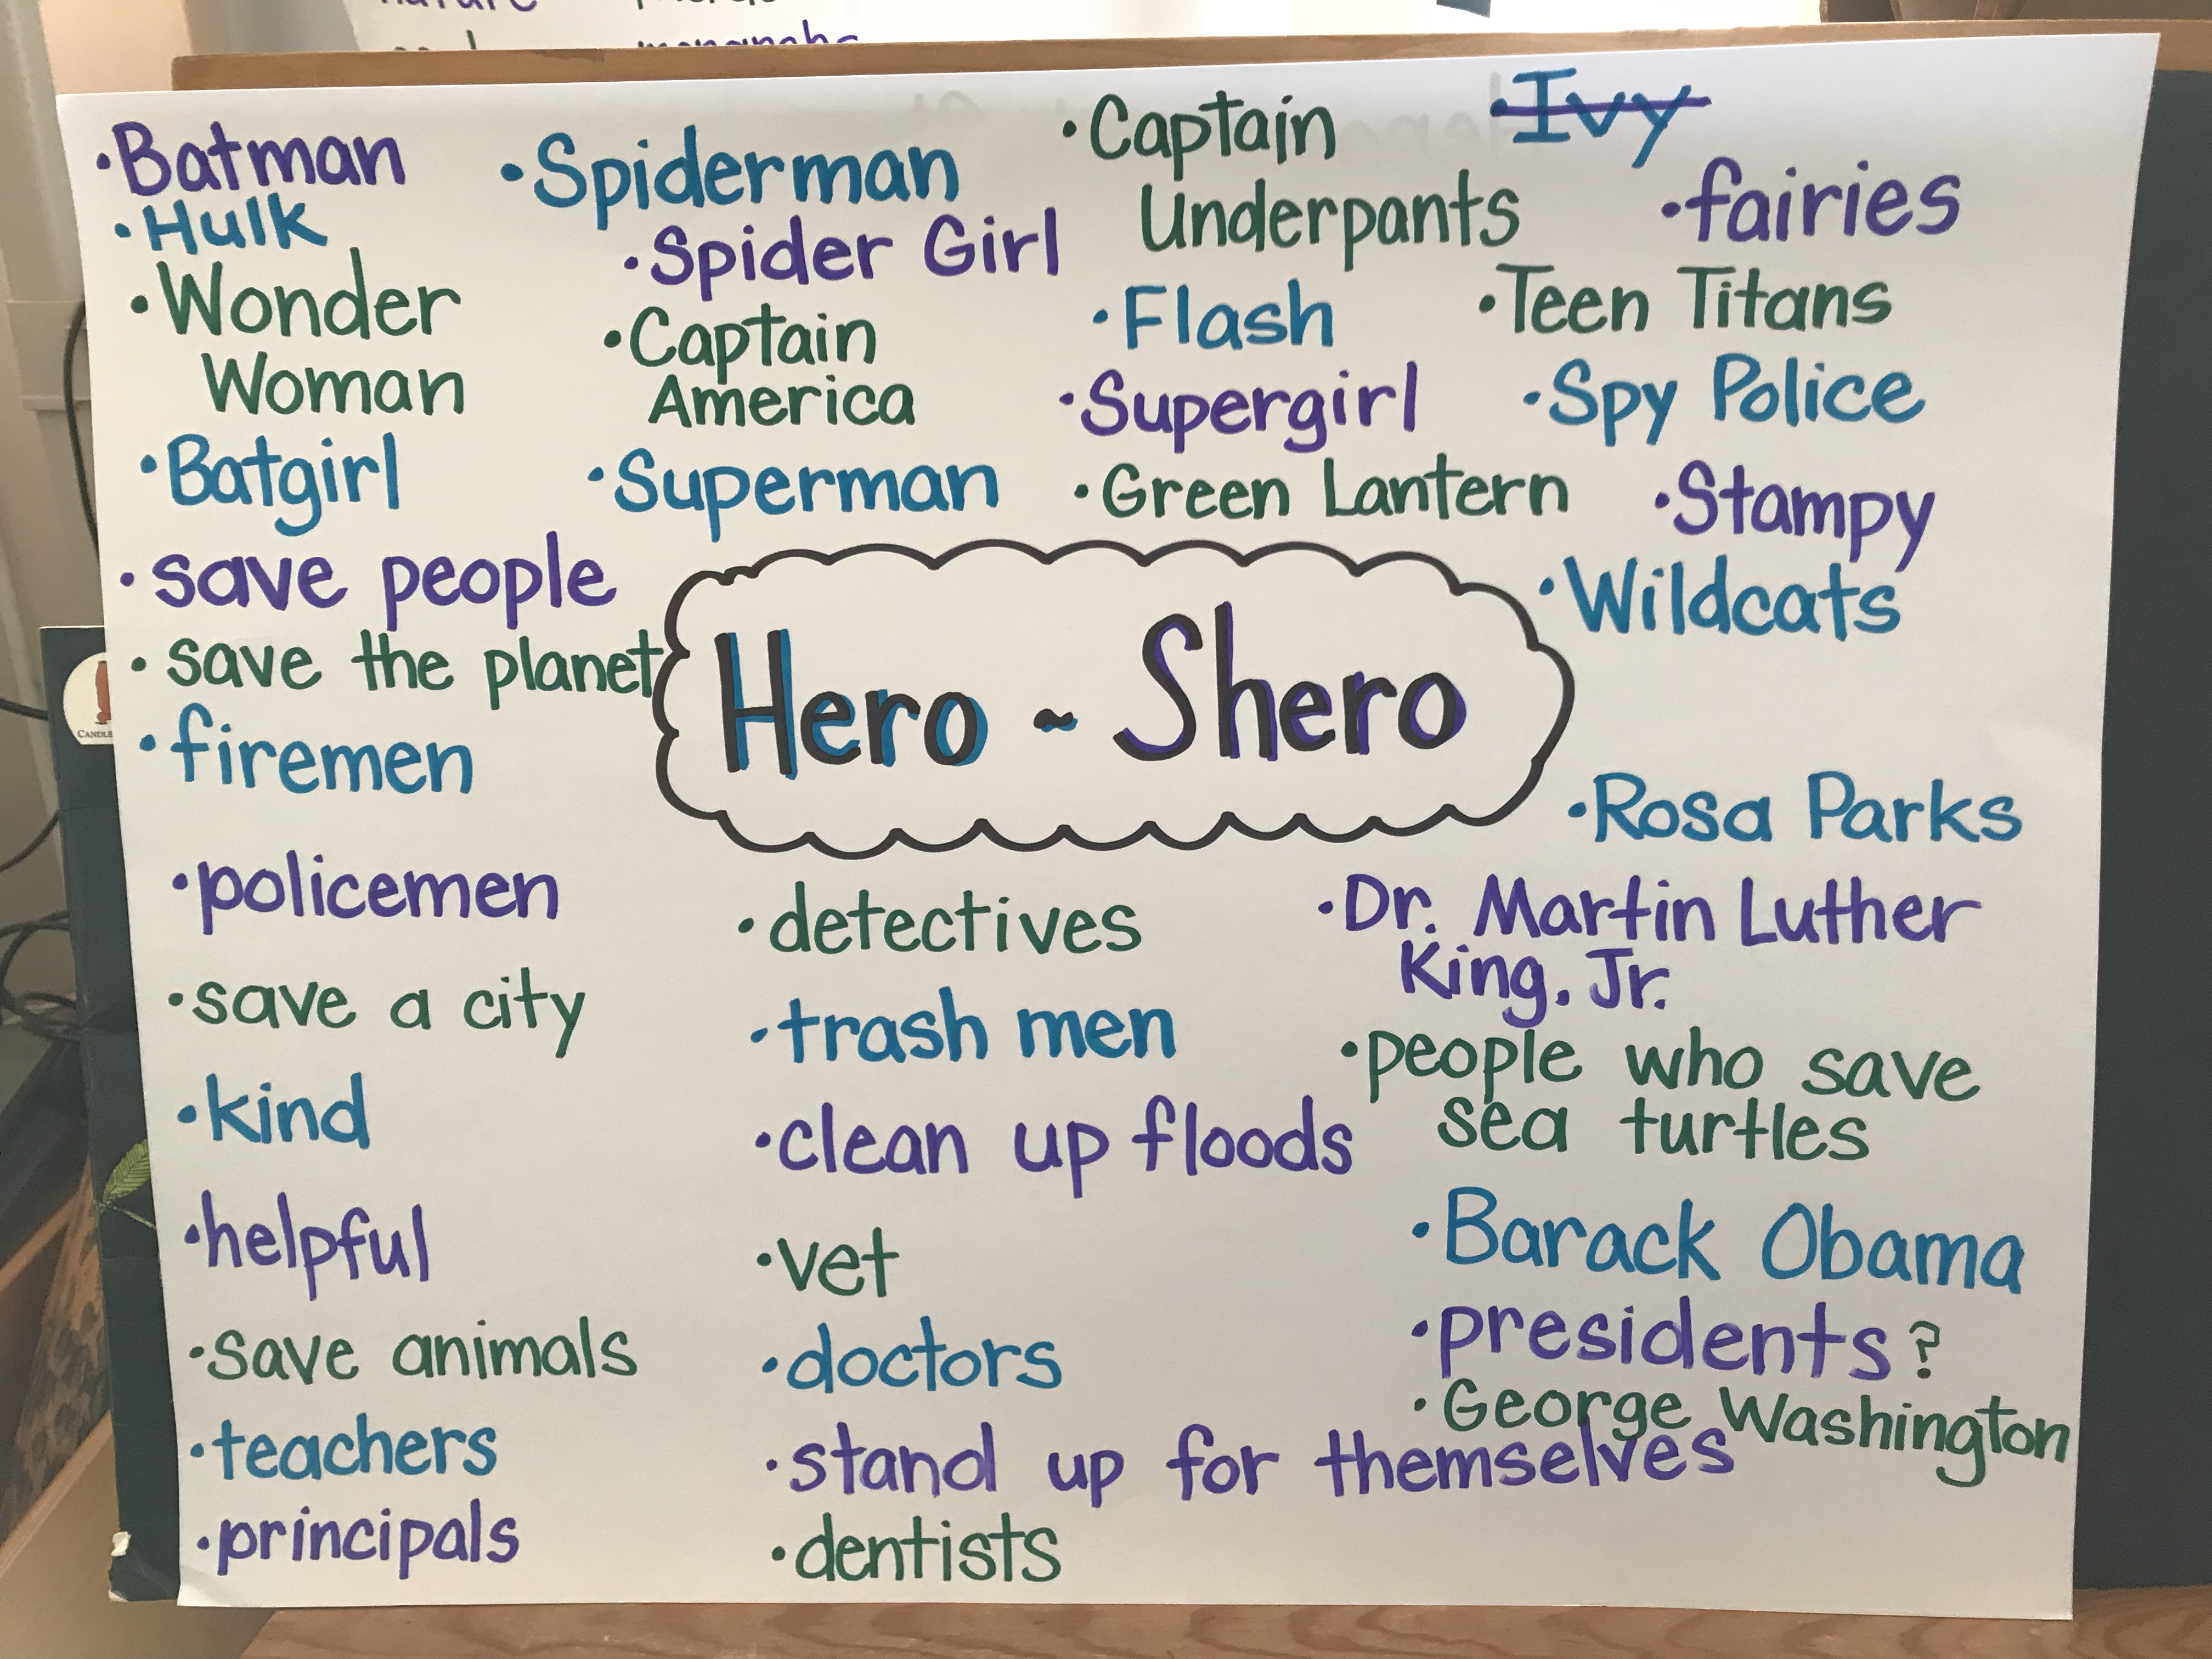 • Batman
• Hulk
• Wonder
Woman
• Batgirl
• save people
• save the planet
• firemen
• policemen
• save a city
• kind
• helpful
• save animals
• teachers
• principals
• Spiderman
• Spider Girl
• Captain
America
• Superman
• Captain
Underpants
• Flash
• Supergirl
• Green Lantern
• Ivy
• fairies
• Teen Titans
• Spy Police
• Stampy
• Wildcats
Hero ~ Shero
• detectives
• trash men
• clean up floods
• vet
• doctors
• stand up for themselves
• dentists
• Rosa Parks
• Dr. Martin Luther
King. Jr.
• people who save
sea turtles
• Barack Obama
• presidents?
• George Washington
CANDLE